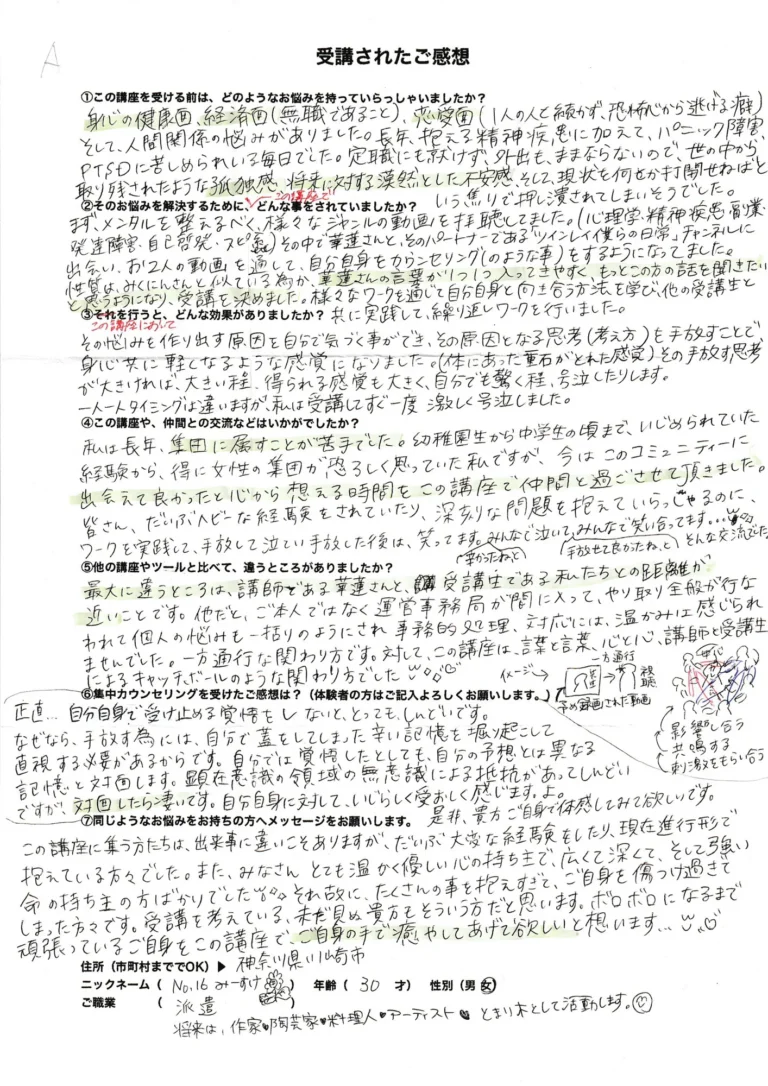 A
受講されたご感想
①この講座を受ける前は、どのようなお悩みを持っていらっしゃいましたか？
身心の健康面、経済面(無職であること)、恋愛面(1人の人と続かず、恐怖心から逃げる癖)
そして、人間関係の悩みがありました。長年、抱える精神疾患に加えて、パニック障害、
PTSDに苦しめられいる毎日でした。定職にも就けず、外出も、ままならないので、世の中から
取り残されたような孤独感、将来に対する漠然とした不安感、そして、現状を何せか打開せねばと
いう焦りで押し潰されてしまいそうでした。
②そのお悩みを解決するために、どんな事をされていましたか？
この講座で
まず、メンタルを整えるべく、様々なジャンルの動画を拝聴してました。(心理学・精神疾患・副業・
発達障害・自己啓発・スピ系)その中で華蓮さんと、そのパートナーである「ツインレイ僕らの日常」チャンネルに
出会い、お2人の動画を通して、自分自身をカウンセリング(のような事)をするようになってました。
性質は、みくにんさんと似ている為か、華蓮さんの言葉が1つ1つ入ってきやすく、もっとこの方の話を聞きたい
と思うようになり、受講を決めました。様々なワークを通じて自分自身と向き合う方法を学び、他の受講生と
共に実践して、繰り返しワークを行いました。
③それを行うと、どんな効果がありましたか？
この講座において
その悩みを作り出す原因を自分で気づく事ができ、その原因となる思考(考え方)を手放すことで
身心共に軽くなるような感覚になりました。(体にあった重石がとれた感覚)その手放す思考
が大きければ、大きい程、得られる感覚も大きく、自分でも驚く程、号泣したりします。
一人一人タイミングは違いますが、私は受講してすぐ一度激しく号泣しました。
④この講座や、仲間との交流などはいかがでしたか？
私は長年、集団に属すことが苦手でした。幼稚園生から中学生の頃まで、いじめられていた
経験から、得に女性の集団が恐ろしく思っていた私ですが、今はこのコミュニティーに
出会えて良かったと心から想える時間をこの講座で仲間と過ごさせて頂きました。
皆さん、だいぶヘビーな経験をされていたり、深刻な問題を抱えていらっしゃるのに、
ワークを実践して、手放して泣い手放した後は、笑ってます。みんなで泣いて、みんなで笑い合ってます…
辛かったねと
手放せて良かったね、と
そんな交流でした
⑤他の講座やツールと比べて、違うところがありましたか？
最大に違うところは、講師である華蓮さんと、受講生である私たちとの距離が
近いことです。他だと、ご本人ではなく運営事務局が間に入って、やり取り全般が行な
われて個人の悩みも一括りのようにされ事務的処理、対応には、温かみは感じられ
ませんでした。一方通行な関わり方です。対して、この講座は、言葉と言葉、心と心、講師と受講生
によるキャッチボールのような関わり方でした
イメージ→
一方通行
視聴
予め録画された動画
影響し合う
共鳴する
刺激をもらい合う
⑥集中カウンセリングを受けたご感想は？（体験者の方はご記入よろしくお願いします。）
正直…自分自身で受け止める覚悟をしないと、とっても、しんどいです。
なぜなら、手放す為には、自分で蓋をしてしまった辛い記憶を掘り起こして
直視する必要があるからです。自分では覚悟したとしても、自分の予想とは異なる
記憶と対面します。顕在意識の領域の無意識による抵抗があってしんどい
ですが、対面したら凄いです。自分自身に対して、いじらしく愛おしく感じます。よ。
是非、貴方ご自身で体感してみて欲しいです。
⑦同じようなお悩みをお持ちの方へメッセージをお願いします。
この講座に集う方たちは、出来事に違いこそありますが、だいぶ大変な経験をしたり、現在進行形で
抱えている方々でした。また、みなさん とても温かく優しい心の持ち主で、広くて深くて、そして強い
命の持ち主の方ばかりでした それ故に、たくさんの事を抱えすぎて、ご自身を傷つけ過ぎて
しまった方々です。受講を考えている、未だ見ぬ貴方もそういう方だと思います。ボロボロになるまで
頑張っているご自身をこの講座で、ご自身の手で癒やしてあげて欲しいと想います…
住所（市町村まででOK）▶ 神奈川県川崎市
ニックネーム（ No.16 みーすけ ） 年齢（ 30 才） 性別（男・女）
ご職業（ 派遣 ）
将来は、作家♥陶芸家♥料理人♥アーティスト♥とまり木として活動します。